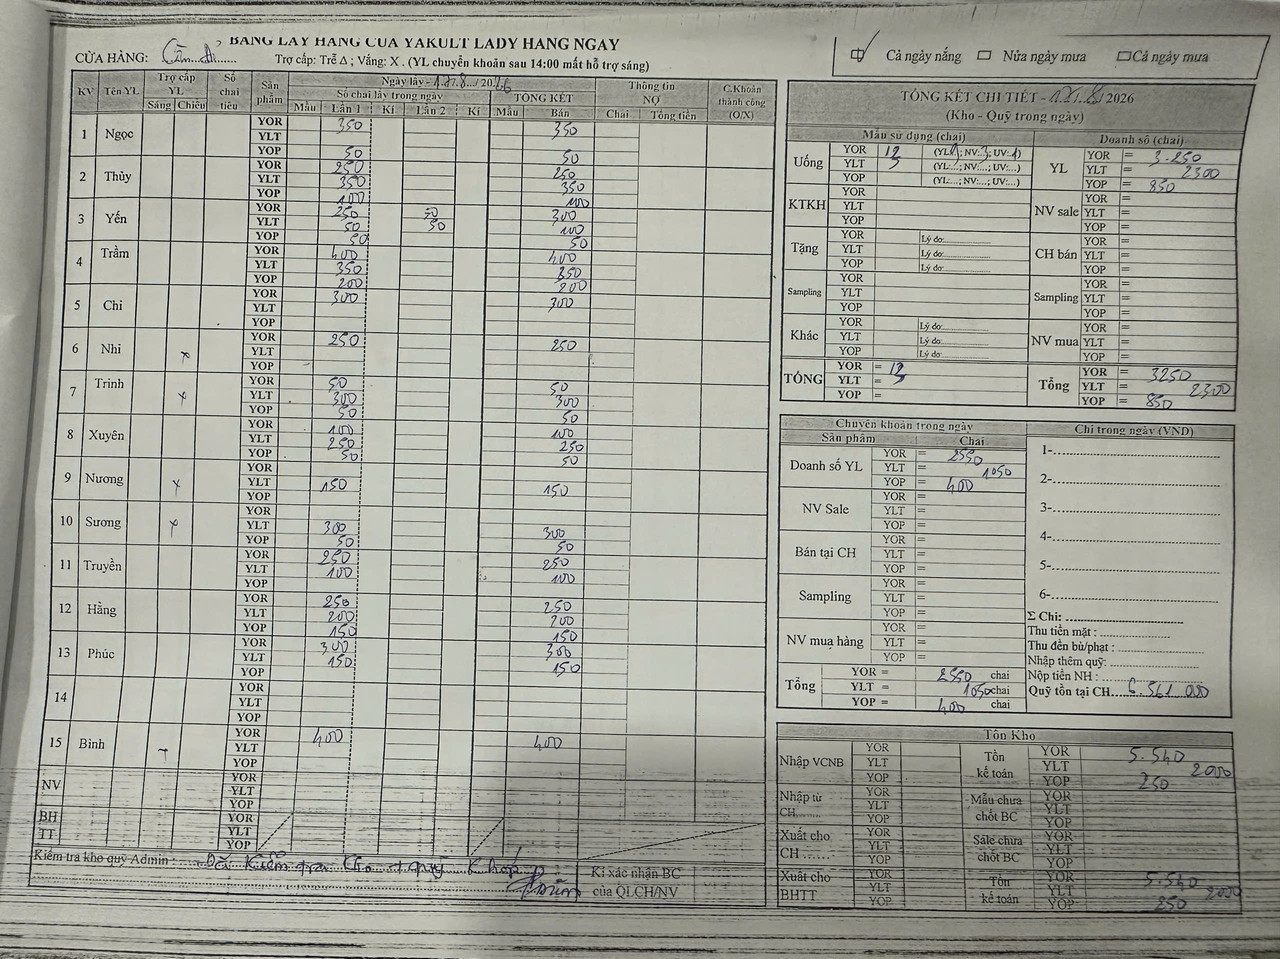 BẢNG LẤY HÀNG CỦA YAKULT LADY HÀNG NGÀY
CỬA HÀNG:
Trợ cấp: Trễ Δ ; Vắng: X . (YL chuyển khoản sau 14:00 mất hỗ trợ sáng)
Cả ngày nắng Nửa ngày mưa Cả ngày mưa
KV Tên YL Trợ cấp YL Sáng Chiều Số chai tiêu Sản phẩm
Số chai lấy trong ngày TỔNG KẾT Thông tin NỢ C.Khoản thành công (O/X)
Mẫu Lần 1 Kí Lần 2 Kí Mẫu Bán Chai Tổng tiền
1 Ngọc
YOR 350 350
YLT
YOP 50 50
2 Thủy
YOR 250 250
YLT 350 350
YOP 100 100
3 Yến
YOR 250 50 300
YLT 50 50 100
YOP 50 50
4 Trầm
YOR 400 400
YLT 350 350
YOP 200 200
5 Chi
YOR 300 300
YLT
YOP
6 Nhi x
YOR 250 250
YLT
YOP
7 Trinh x
YOR 50 50
YLT 300 300
YOP 50 50
8 Xuyên
YOR 100 100
YLT 250 250
YOP 50 50
9 Nương x
YOR
YLT 150 150
YOP
10 Sương x
YOR
YLT 300 300
YOP 50 50
11 Truyền
YOR 250 250
YLT 100 100
YOP
12 Hằng
YOR 250 250
YLT 200 200
YOP 150 150
13 Phúc
YOR 300 300
YLT 150 150
YOP
14
YOR
YLT
YOP
15 Bình
YOR 400 400
YLT
YOP
NV
YOR
YLT
YOP
BH TT
YOR
YLT
YOP
Kiểm tra kho quỹ Admin : Đã kiểm tra kho + quỹ khớp
Kí xác nhận BC của QLCH/NV
TỔNG KẾT CHI TIẾT - 2026
(Kho - Quỹ trong ngày)
Mẫu sử dụng (chai) Doanh số (chai)
Uống
YOR
YLT
YOP (YL:...; NV:...; UV:...)
YL
YOR = 3.250
YLT = 2300
YOP = 850
KTKH
YOR
YLT
YOP
NV sale
YOR =
YLT =
YOP =
Tặng
YOR Lý do:
YLT Lý do:
YOP Lý do:
CH bán
YOR =
YLT =
YOP =
Sampling
YOR
YLT
YOP
Sampling
YOR =
YLT =
YOP =
Khác
YOR Lý do:
YLT Lý do:
YOP Lý do:
NV mua
YOR =
YLT =
YOP =
TỔNG
YOR =
YLT =
YOP =
Tổng
YOR = 3250
YLT = 2300
YOP = 850
Chuyển khoản trong ngày
Sản phẩm Chai
Doanh số YL
YOR = 2550
YLT = 1050
YOP = 400
NV Sale
YOR =
YLT =
YOP =
Bán tại CH
YOR =
YLT =
YOP =
Sampling
YOR =
YLT =
YOP =
NV mua hàng
YOR =
YLT =
YOP =
Tổng
YOR = 2550 chai
YLT = 1050 chai
YOP = 400 chai
Chi trong ngày (VND)
1-
2-
3-
4-
5-
6-
Σ Chi:
Thu tiền mặt :
Thu đền bù/phạt :
Nhập thêm quỹ:
Nộp tiền NH :
Quỹ tồn tại CH 6.561.000
Tồn Kho
Nhập VCNB
YOR
YLT
YOP
Tồn kế toán
YOR 5.540
YLT 2000
YOP 250
Nhập từ CH
YOR
YLT
YOP
Mẫu chưa chốt BC
YOR
YLT
YOP
Xuất cho CH
YOR
YLT
YOP
Sale chưa chốt BC
YOR
YLT
YOP
Xuất cho BHTT
YOR
YLT
YOP
Tồn kế toán
YOR 5.540
YLT 2000
YOP 250